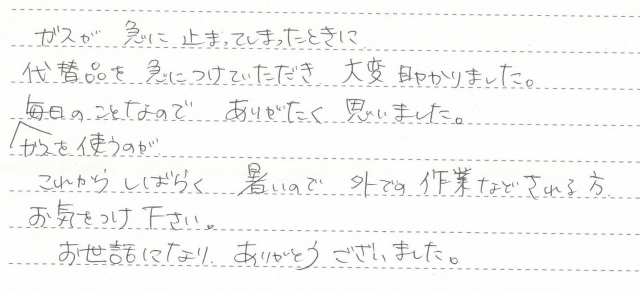 ガスが 急に 止まってしまったときに
代替品を 急につけていただき 大変 助かりました。
毎日のことなので ありがたく 思いました。
ガスを使うのが
これから しばらく 暑いので 外での 作業などされる方
お気をつけ下さい。
お世話になり、ありがとうございました。